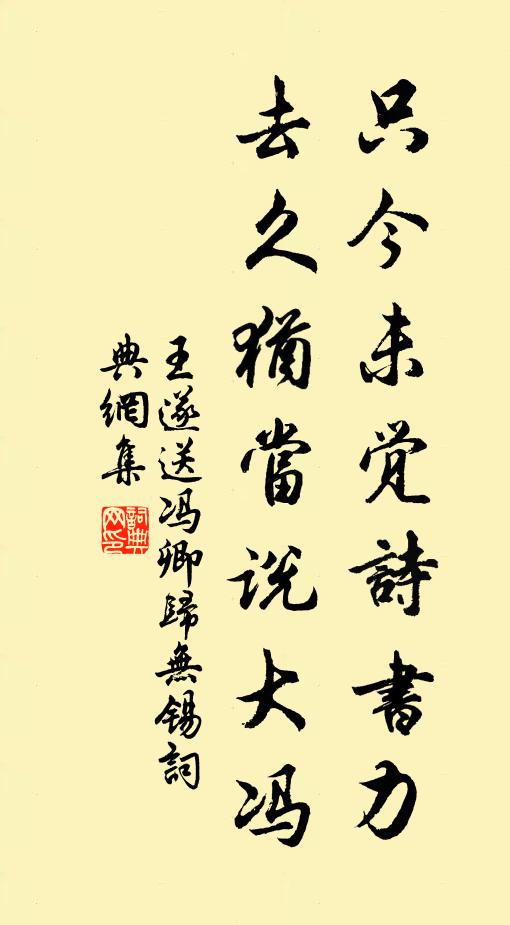 只今未觉詩書力
去久猶當说大冯
王遂送冯卿歸無锡詞
典網集
詞典
网印